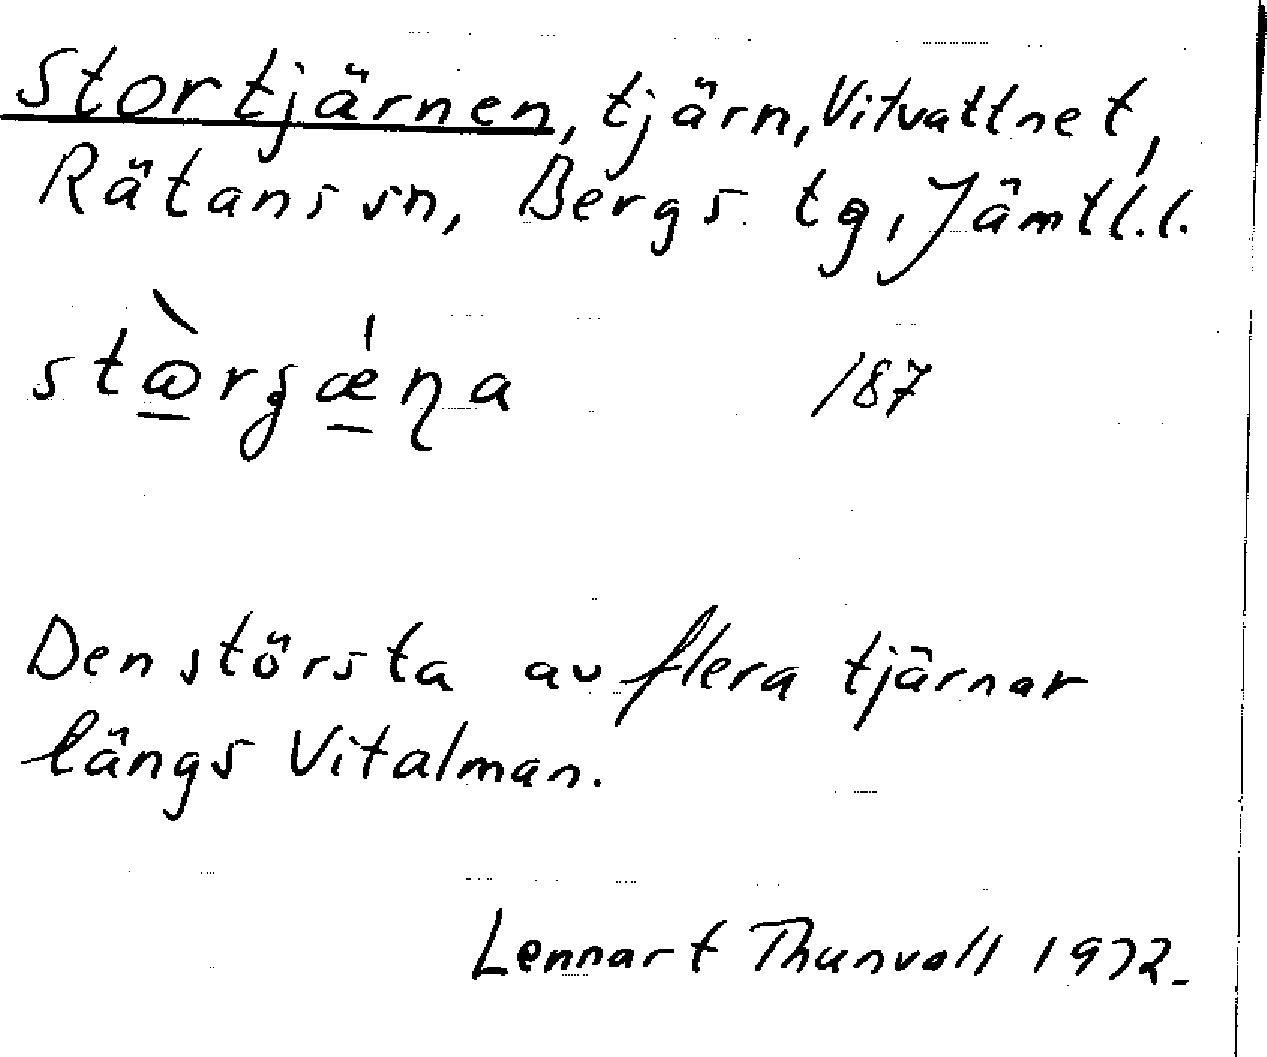 Stortjärnen, tjärn, Vitvattnet,
Rätans sn, Bergs tg, Jämtl.l.
187
Den största av flera tjärnar
längs Vitalman.
Lennart Thunvall 1972.